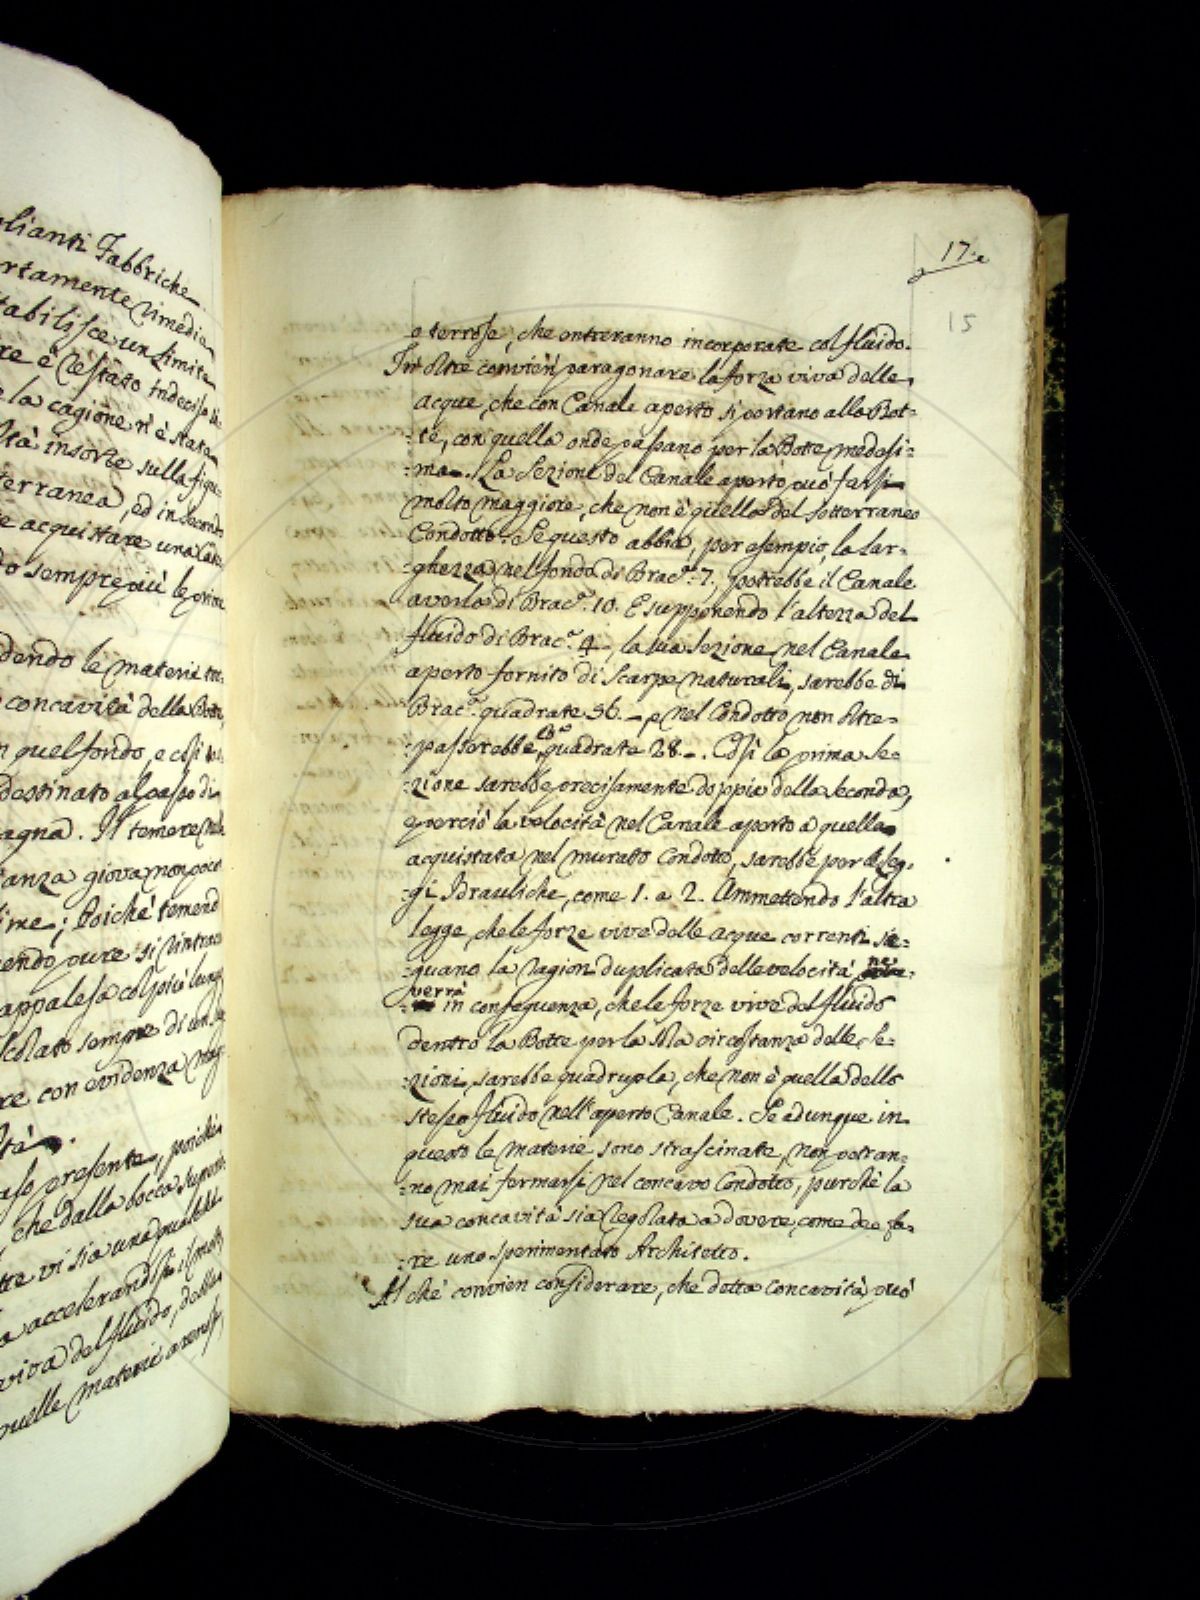 glianti Fabbriche
rtamente rimedia
tabilisce un limite
re è restato indeciso
e la cagione n'è stata
ltà insorte sulla figu
terranea, ed in secondo
e acquistare una
do sempre più le prime
dendo le materie
concavità della Botte,
n quel fondo, e così
destinato al passo di
agna. Il temere
anza giova non poco
ime; Poichè temend
endo pure si rintrac
appalesa col più lungo
colato sempre di
re con evidenza mag
ltà.
aso presente, poichè
che dalla bocca superi
tre vi sia una qualche
a accelerandosi il moto
viva del fluido, delle
quelle materie arenose,
17.
15
o terrose, che entreranno incorporate col fluido.
In oltre convien paragonare la forza viva delle
acque, che con Canale aperto si portano alla Bot-
:te, con quella onde passano per la Botte medesi:
:ma. La Sezione del Canale aperto può farsi
molto maggiore, che non è quella del sotterraneo
Condotto. Se questo abbia, per esempio, la lar-
:ghezza nel fondo di Brac.ª 7. potrebbe il Canale
averla di Brac.ª 10. E supponendo l'altezza del
fluido di Brac.ª 4, la sua sezione nel Canale
aperto fornito di Scarpe naturali, sarebbe di
Brac.ª quadrate 56. e nel Condotto non oltre-
:passerebbe quadrate 28. Così la prima se-
:zione sarebbe precisamente doppia della seconda,
e perciò la velocità nel Canale aperto a quella
acquistata nel murato Condotto, sarebbe per le leg-
:gi Idrauliche, come 1. a 2. Ammettendo l'altra
legge, che le forze vive delle acque correnti se:
:guano la ragion duplicata delle velocità ne
verrà
in conseguenza, che le forze vive del fluido
dentro la Botte per la sola circostanza delle se-
:zioni, sarebbe quadrupla, che non è quella dello
stesso fluido nell'aperto Canale. Se adunque in
questo le materie sono strascinate, non potran-
:no mai fermarsi nel concavo Condotto, purchè la
sua concavità sia regolata a dovere, come dee fa-
:re uno sperimentato Architetto.
Al chè convien considerare, che detta concavità può